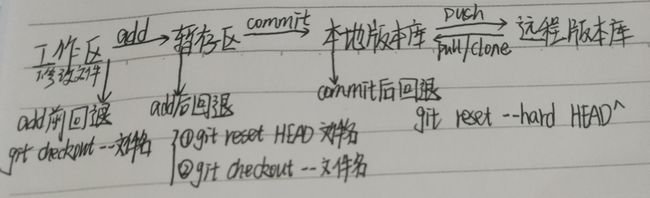 工作区 add 暂存区 commit 本地版本库 push pull/clone 远程版本库
修改文件
add前回退 add后回退 commit后回退
git checkout --文件名 ①git reset HEAD 文件名 git reset --hard HEAD^
②git checkout --文件名